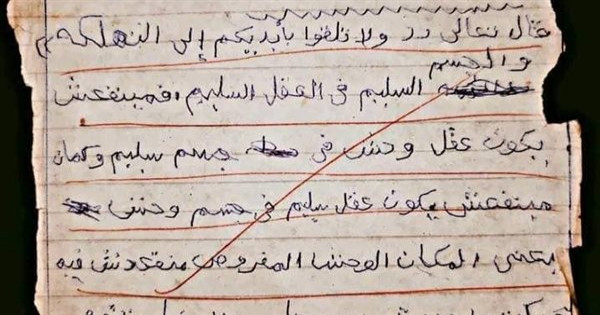 قال تعالى (( ولا تلقوا بأيديكم إلى التهلكه ))
والجسم
السليم فى العقل السليم، فمينفعش
يكون عقل وحش فى جسم سليم وكمان
مينفعش يكون عقل سليم فى جسم وحش
يعنى المكان الوحش المفروض منقعدش فيه